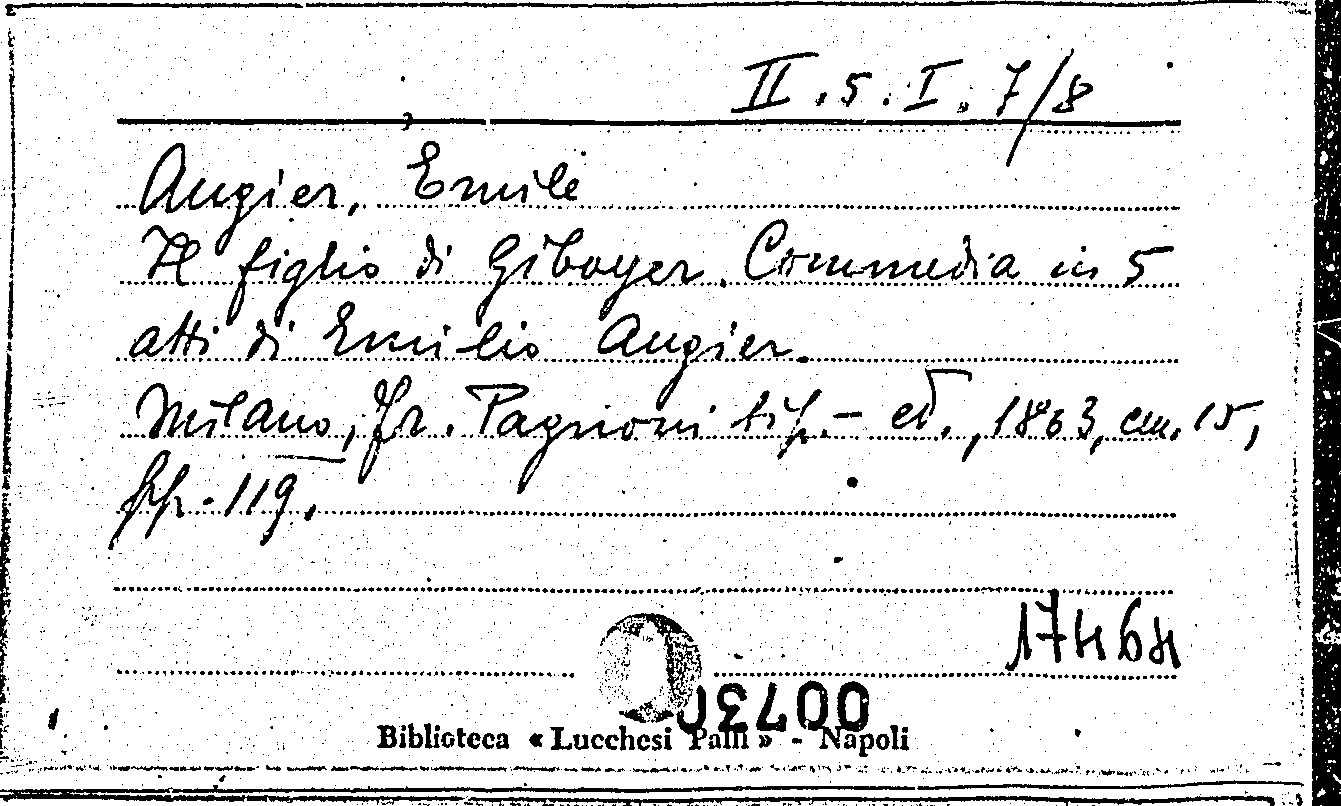 II. 5. I. 7/8
Augier, Emile
Il figlio di Giboyer. Commedia in 5
atti di Emilio Augier.
Milano, Fr. Pagnoni tip.- ed., 1863, cm. 15,
pp. 119.
17464
Biblioteca « Lucchesi Palli » - Napoli